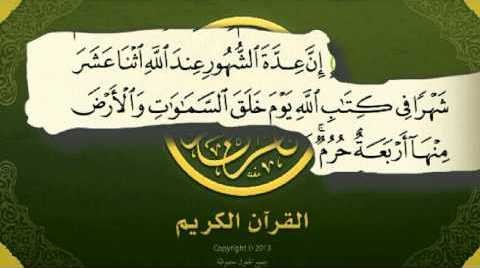 إِنَّ عِدَّةَ الشُّهُورِ عِندَ اللَّهِ اثْنَا عَشَرَ
شَهْرًا فِي كِتَابِ اللَّهِ يَوْمَ خَلَقَ السَّمَاوَاتِ وَالْأَرْضَ
مِنْهَا أَرْبَعَةٌ حُرُمٌ ۚ
القرآن الكريم
Copyright © 2013